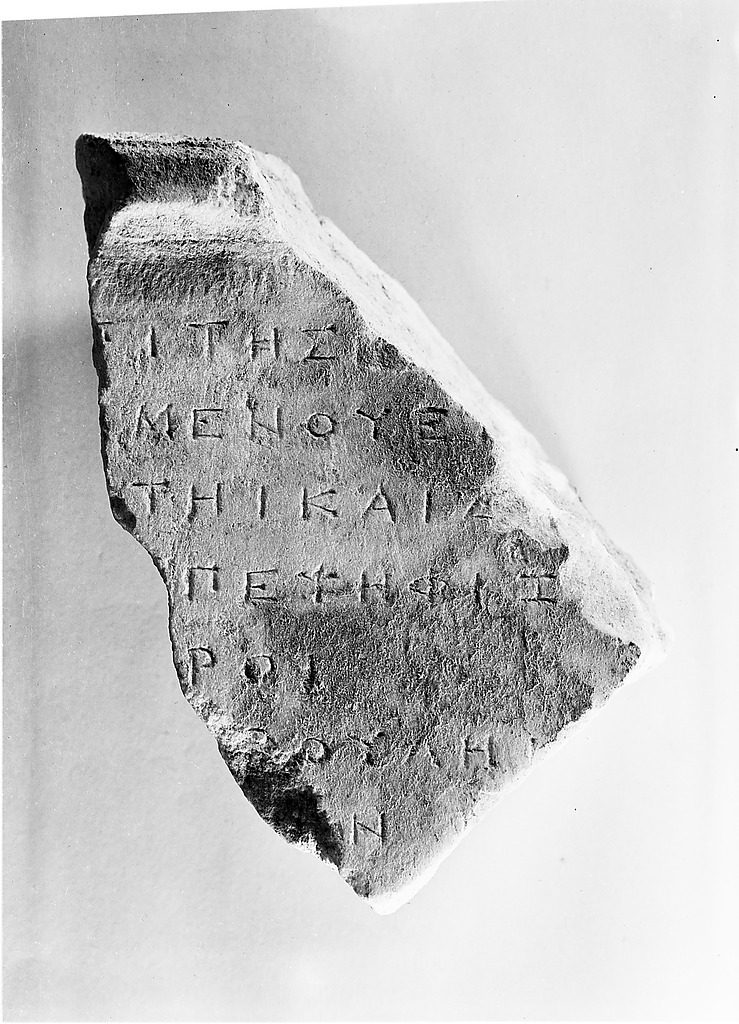 ΤΙΤΗΣ
ΜΕΝΟΥΕ
ΤΗΙΚΑΙΔ
ΠΕΨΗΦΙΣ
ΡΟΙ
ΒΟΥΛΗ
Ν